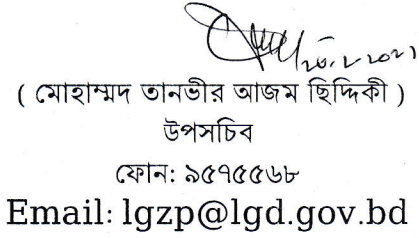 ২৮.২.২০২১
( মোহাম্মদ তানভীর আজম ছিদ্দিকী )
উপসচিব
ফোন: ৯৫৭৫৫৬৮
Email: lgzp@lgd.gov.bd